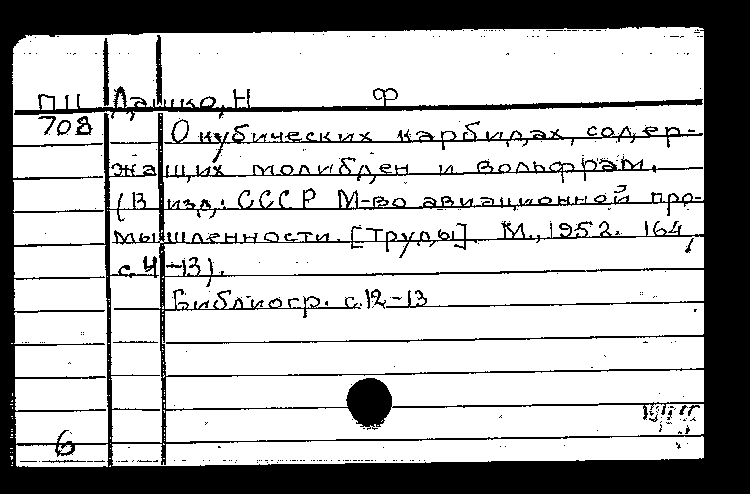 ПИ Дашко, Н Ф
708 О кубических карбидах, содер-
жащих молибден и вольфрам.
(В изд.: СССР М-во авиационной про-
мышленности. [Труды]. М., 1952. 164,
с. 4-13).
Библиогр. с. 12-13
6